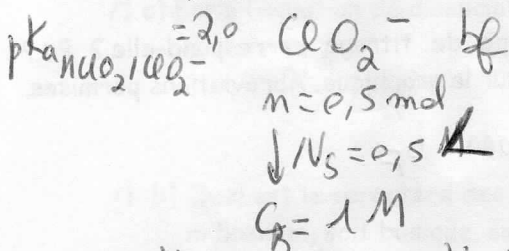 pKa HClO2/ClO2⁻ = 2,0
ClO2⁻ bf
n = 0,5 mol
↓ VS = 0,5 L
CB = 1M